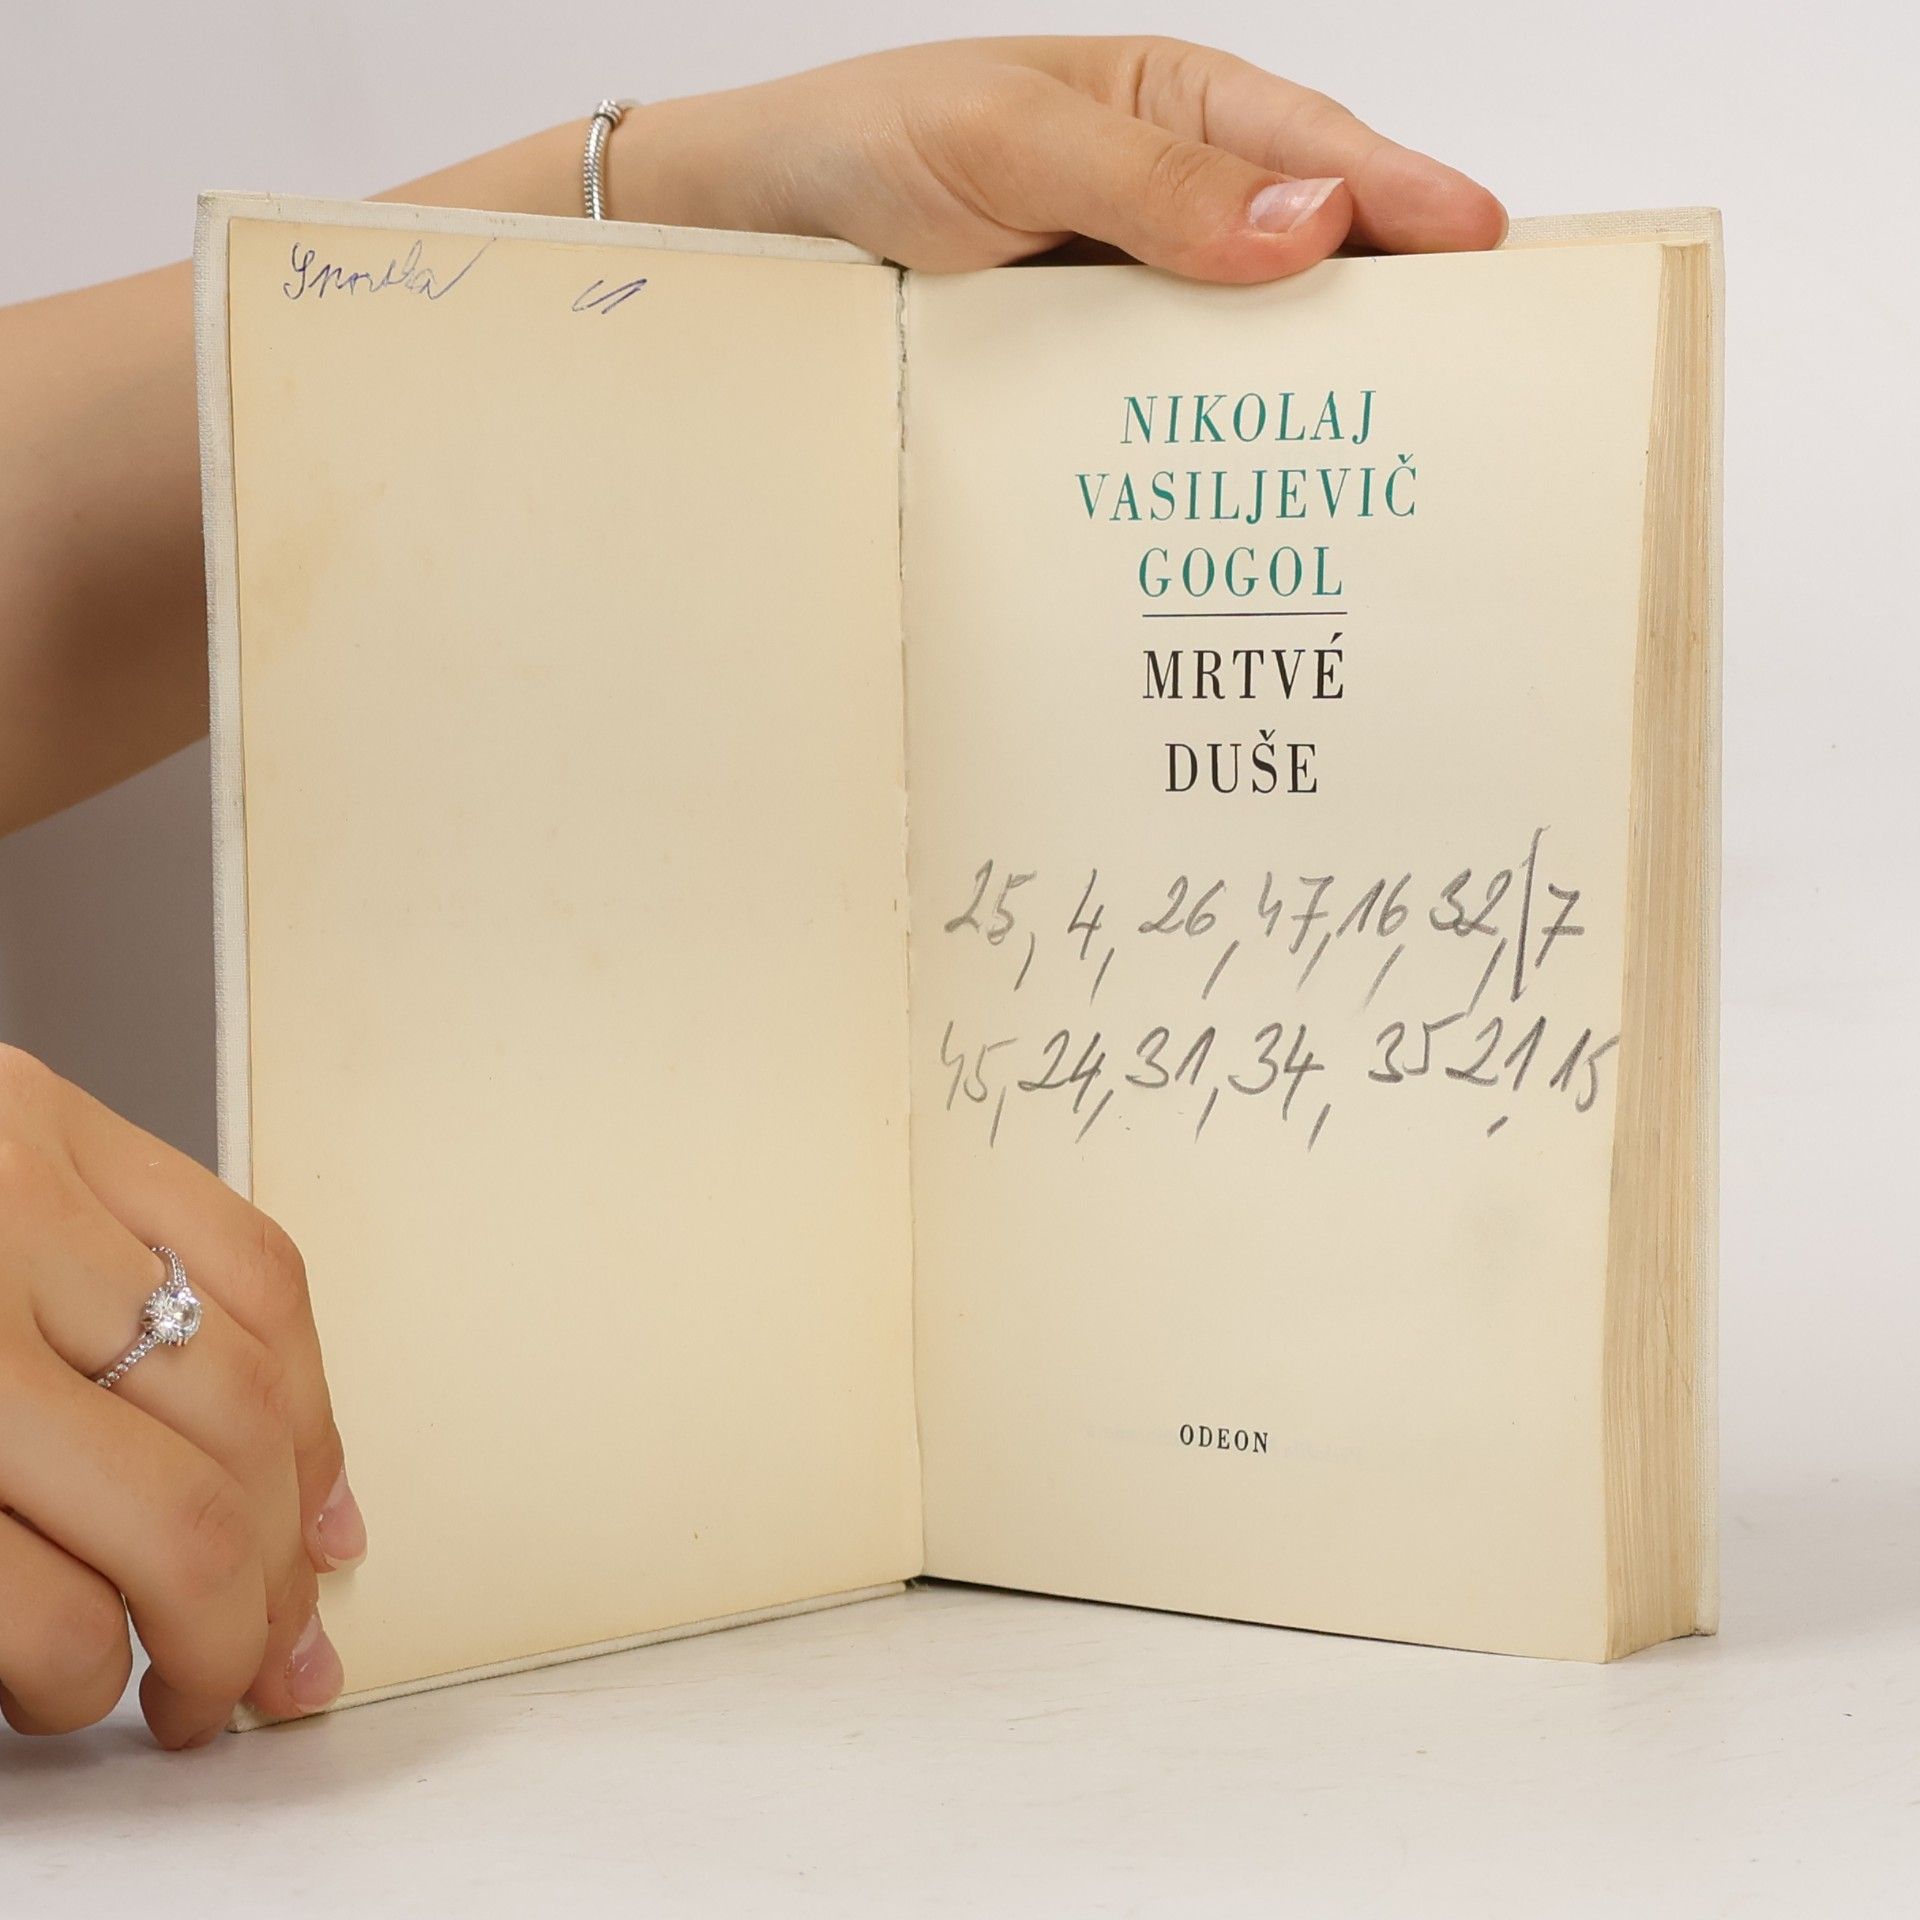 NIKOLAJ
VASILJEVIČ
GOGOL
MRTVÉ
DUŠE
25, 4, 26, 47, 16, 32, | 7
45, 24, 31, 34, 35 21, 15
ODEON